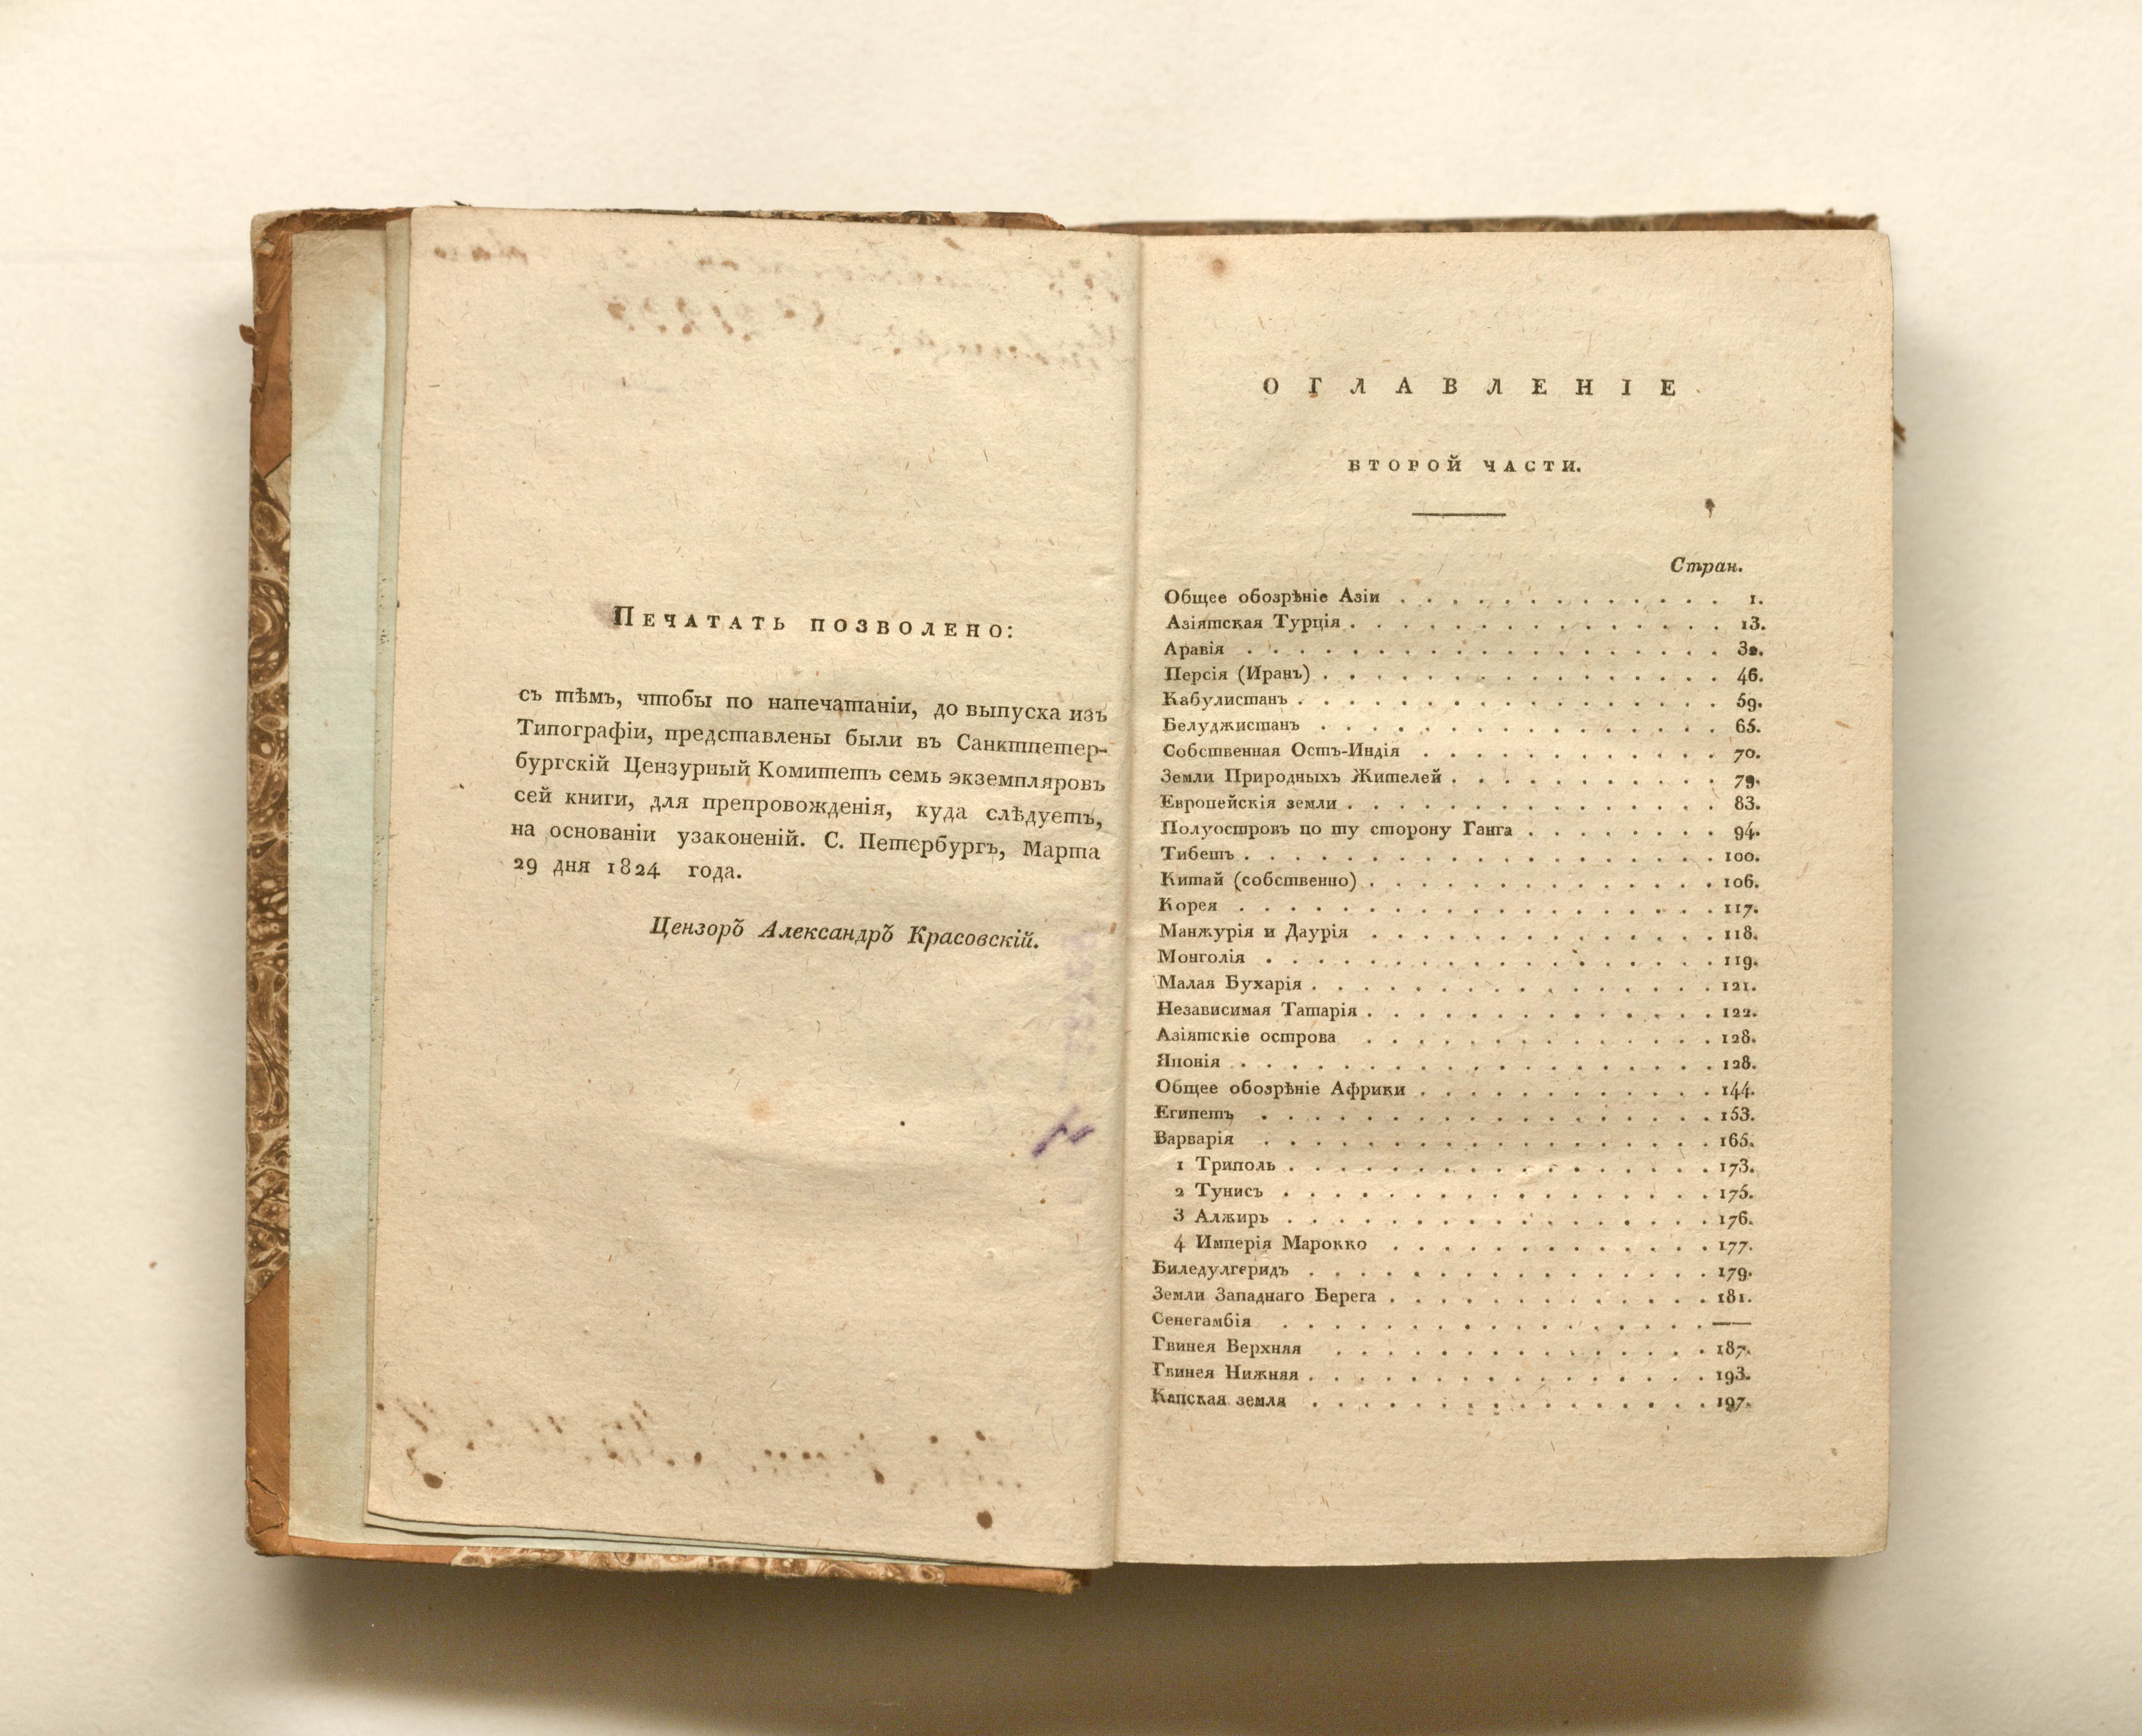 Печатать позволено:
съ тѣмъ, чтобы по напечатаніи, до выпуска изъ
Типографіи, представлены были въ Санктпетер-
бургскій Цензурный Комитетъ семь экземпляровъ
сей книги, для препровожденія, куда слѣдуетъ,
на основаніи узаконеній. С. Петербургъ, Марта
29 дня 1824 года.
Цензоръ Александръ Красовскій.
ОГЛАВЛЕНІЕ
ВТОРОЙ ЧАСТИ.
Стран.
Общее обозрѣніе Азіи . . . . . . . . . . . . . 1.
Азіятская Турція . . . . . . . . . . . . . . . 13.
Аравія . . . . . . . . . . . . . . . . . . . 32.
Персія (Иранъ) . . . . . . . . . . . . . . . . 46.
Кабулистанъ . . . . . . . . . . . . . . . . . 59.
Белуджистанъ . . . . . . . . . . . . . . . . 65.
Собственная Остъ-Индія . . . . . . . . . . . . 70.
Земли Природныхъ Жителей . . . . . . . . . . . 79.
Европейскія земли . . . . . . . . . . . . . . . 83.
Полуостровъ по ту сторону Ганга . . . . . . . . 94.
Тибетъ . . . . . . . . . . . . . . . . . . . 100.
Китай (собственно) . . . . . . . . . . . . . . 106.
Корея . . . . . . . . . . . . . . . . . . . 117.
Манжурія и Даурія . . . . . . . . . . . . . . 118.
Монголія . . . . . . . . . . . . . . . . . . 119.
Малая Бухарія . . . . . . . . . . . . . . . . 121.
Независимая Татарія . . . . . . . . . . . . . . 122.
Азіятскіе острова . . . . . . . . . . . . . . 128.
Японія . . . . . . . . . . . . . . . . . . . 128.
Общее обозрѣніе Африки . . . . . . . . . . . . 144.
Египетъ . . . . . . . . . . . . . . . . . . 153.
Варварія . . . . . . . . . . . . . . . . . . 165.
1 Триполь . . . . . . . . . . . . . . . . . 173.
2 Тунисъ . . . . . . . . . . . . . . . . . 175.
3 Алжиръ . . . . . . . . . . . . . . . . . 176.
4 Имперія Марокко . . . . . . . . . . . . . 177.
Биледулгеридъ . . . . . . . . . . . . . . . . 179.
Земли Западнаго Берега . . . . . . . . . . . . . 181.
Сенегамбія . . . . . . . . . . . . . . . . . —
Гвинея Верхняя . . . . . . . . . . . . . . . 187.
Гвинея Нижняя . . . . . . . . . . . . . . . . 193.
Капская земля . . . . . . . . . . . . . . . . 197.